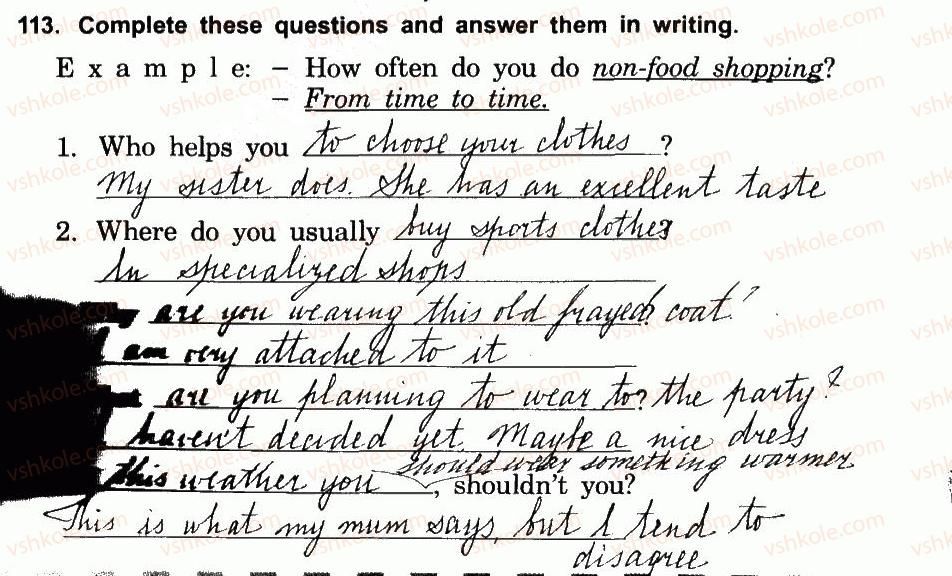 113. Complete these questions and answer them in writing.
E x a m p l e: – How often do you do non-food shopping?
– From time to time.
1. Who helps you to choose your clothes ?
My sister does. She has an excellent taste
2. Where do you usually buy sports clothes?
In specialized shops
are you wearing this old frayed? coat?
I am very attached to it
are you planning to wear to? the party?
I haven't decided yet. Maybe a nice dress
should wear something warmer
this weather you , shouldn't you?
This is what my mum says, but I tend to
disagree